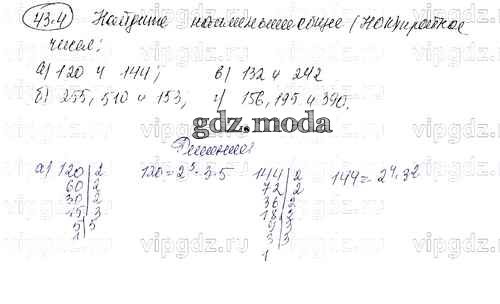 43.4 Найдите наименьшее общее (НОК) кратное
чисел:
а) 120 и 144; в) 132 и 242
б) 255, 510 и 153; г) 156, 195 и 390.
gdz.moda
Решение
а) 120 | 2 120 = 2³·3·5 144 | 2 144 = 2⁴·3²
60 | 2 72 | 2
30 | 2 36 | 2
15 | 3 18 | 2
5 | 5 9 | 3
1 3 | 3
1
vipgdz.ru